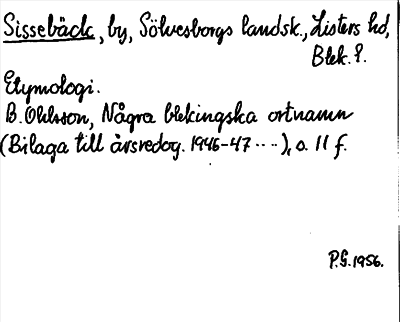 Sissebäck, by, Sölvesborgs landsk., Listers hd,
Blek. l.
Etymologi.
B. Ohlsson, Några blekingska ortnamn
(Bilaga till årsredog. 1946-47 ....), s. 11 f.
P.G. 1956.